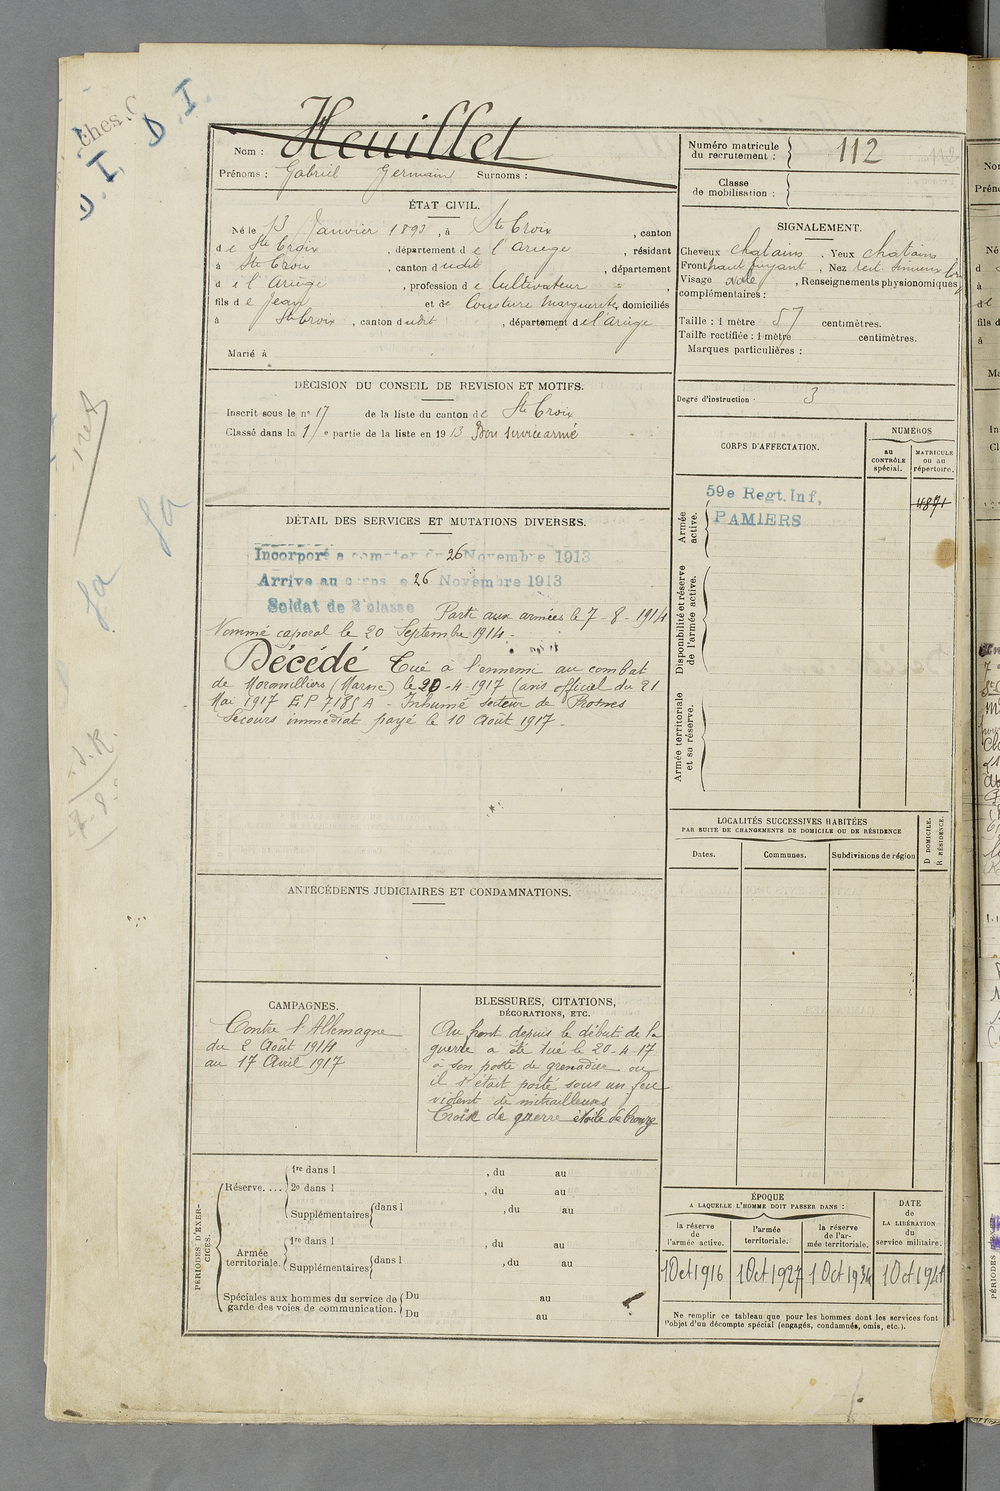 D. I.
D. I.
Heuillet
Nom :
Prénoms : Gabriel Germain Surnoms :
Numéro matricule du recrutement : 112
Classe de mobilisation :
ÉTAT CIVIL.
Né le 13 Janvier 1893, à Ste Croix, canton
de Ste Croix, département de l'Ariège, résidant
à Ste Croix, canton dudit, département
de l'Ariège, profession de Cultivateur
fils de Jean et de Cousture Marguerite, domiciliés
à Ste Croix, canton dudit, département de l'Ariège
Marié à
SIGNALEMENT.
Cheveux chatains. Yeux chatains
Front haut fuyant, Nez rect
Visage ovale, Renseignements physionomiques
complémentaires :
Taille : 1 mètre 57 centimètres.
Taille rectifiée : 1 mètre centimètres.
Marques particulières :
DÉCISION DU CONSEIL DE REVISION ET MOTIFS.
Inscrit sous le n° 17 de la liste du canton de Ste Croix
Classé dans la 1re partie de la liste en 1913 Bon service armé
Degré d'instruction : 3
CORPS D'AFFECTATION.
NUMÉROS
au CONTRÔLE spécial.
MATRICULE ou au répertoire.
Armée active.
59e Regt. Inf,
PAMIERS
4871
Disponibilité et réserve de l'armée active.
Armée territoriale et sa réserve.
DÉTAIL DES SERVICES ET MUTATIONS DIVERSES.
Incorporé a compter du 26 Novembre 1913
Arrive au corps le 26 Novembre 1913
Soldat de 2e classe Parti aux armées le 7-8-1914
Nommé caporal le 20 Septembre 1914.
Décédé Tué à l'ennemi au combat
de Moronvilliers (Marne) le 20-4-1917 (avis officiel du 21
Mai 1917 EP 7185 A - Inhumé secteur de Prosnes
Secours immédiat payé le 10 Août 1917.
LOCALITÉS SUCCESSIVES HABITÉES
PAR SUITE DE CHANGEMENTS DE DOMICILE OU DE RÉSIDENCE
Dates.
Communes.
Subdivisions de région
D DOMICILE.
R RÉSIDENCE.
ANTÉCÉDENTS JUDICIAIRES ET CONDAMNATIONS.
CAMPAGNES.
Contre l'Allemagne
du 2 Août 1914
au 17 Avril 1917
BLESSURES, CITATIONS,
DÉCORATIONS, ETC.
Au front depuis le début de la
guerre a été tué le 20-4-17
à son poste de grenadier où
il s'était porté sous un feu
violent de mitrailleuses
Croix de guerre étoile de bronze
PÉRIODES D'EXERCICES.
Réserve....
1re dans l , du au
2e dans l , du au
Supplémentaires dans l , du au
Armée territoriale.
1re dans l , du au
Supplémentaires dans l , du au
Spéciales aux hommes du service de garde des voies de communication.
Du au
Du au
ÉPOQUE
A LAQUELLE L'HOMME DOIT PASSER DANS :
la réserve de l'armée active.
l'armée territoriale.
la réserve de l'armée territoriale.
DATE de LA LIBÉRATION du service militaire.
1 Oct 1916
1 Oct 1927
1 Oct 1934
1 Oct 1941
Ne remplir ce tableau que pour les hommes dont les services font
l'objet d'un décompte spécial (engagés, condamnés, omis, etc.).